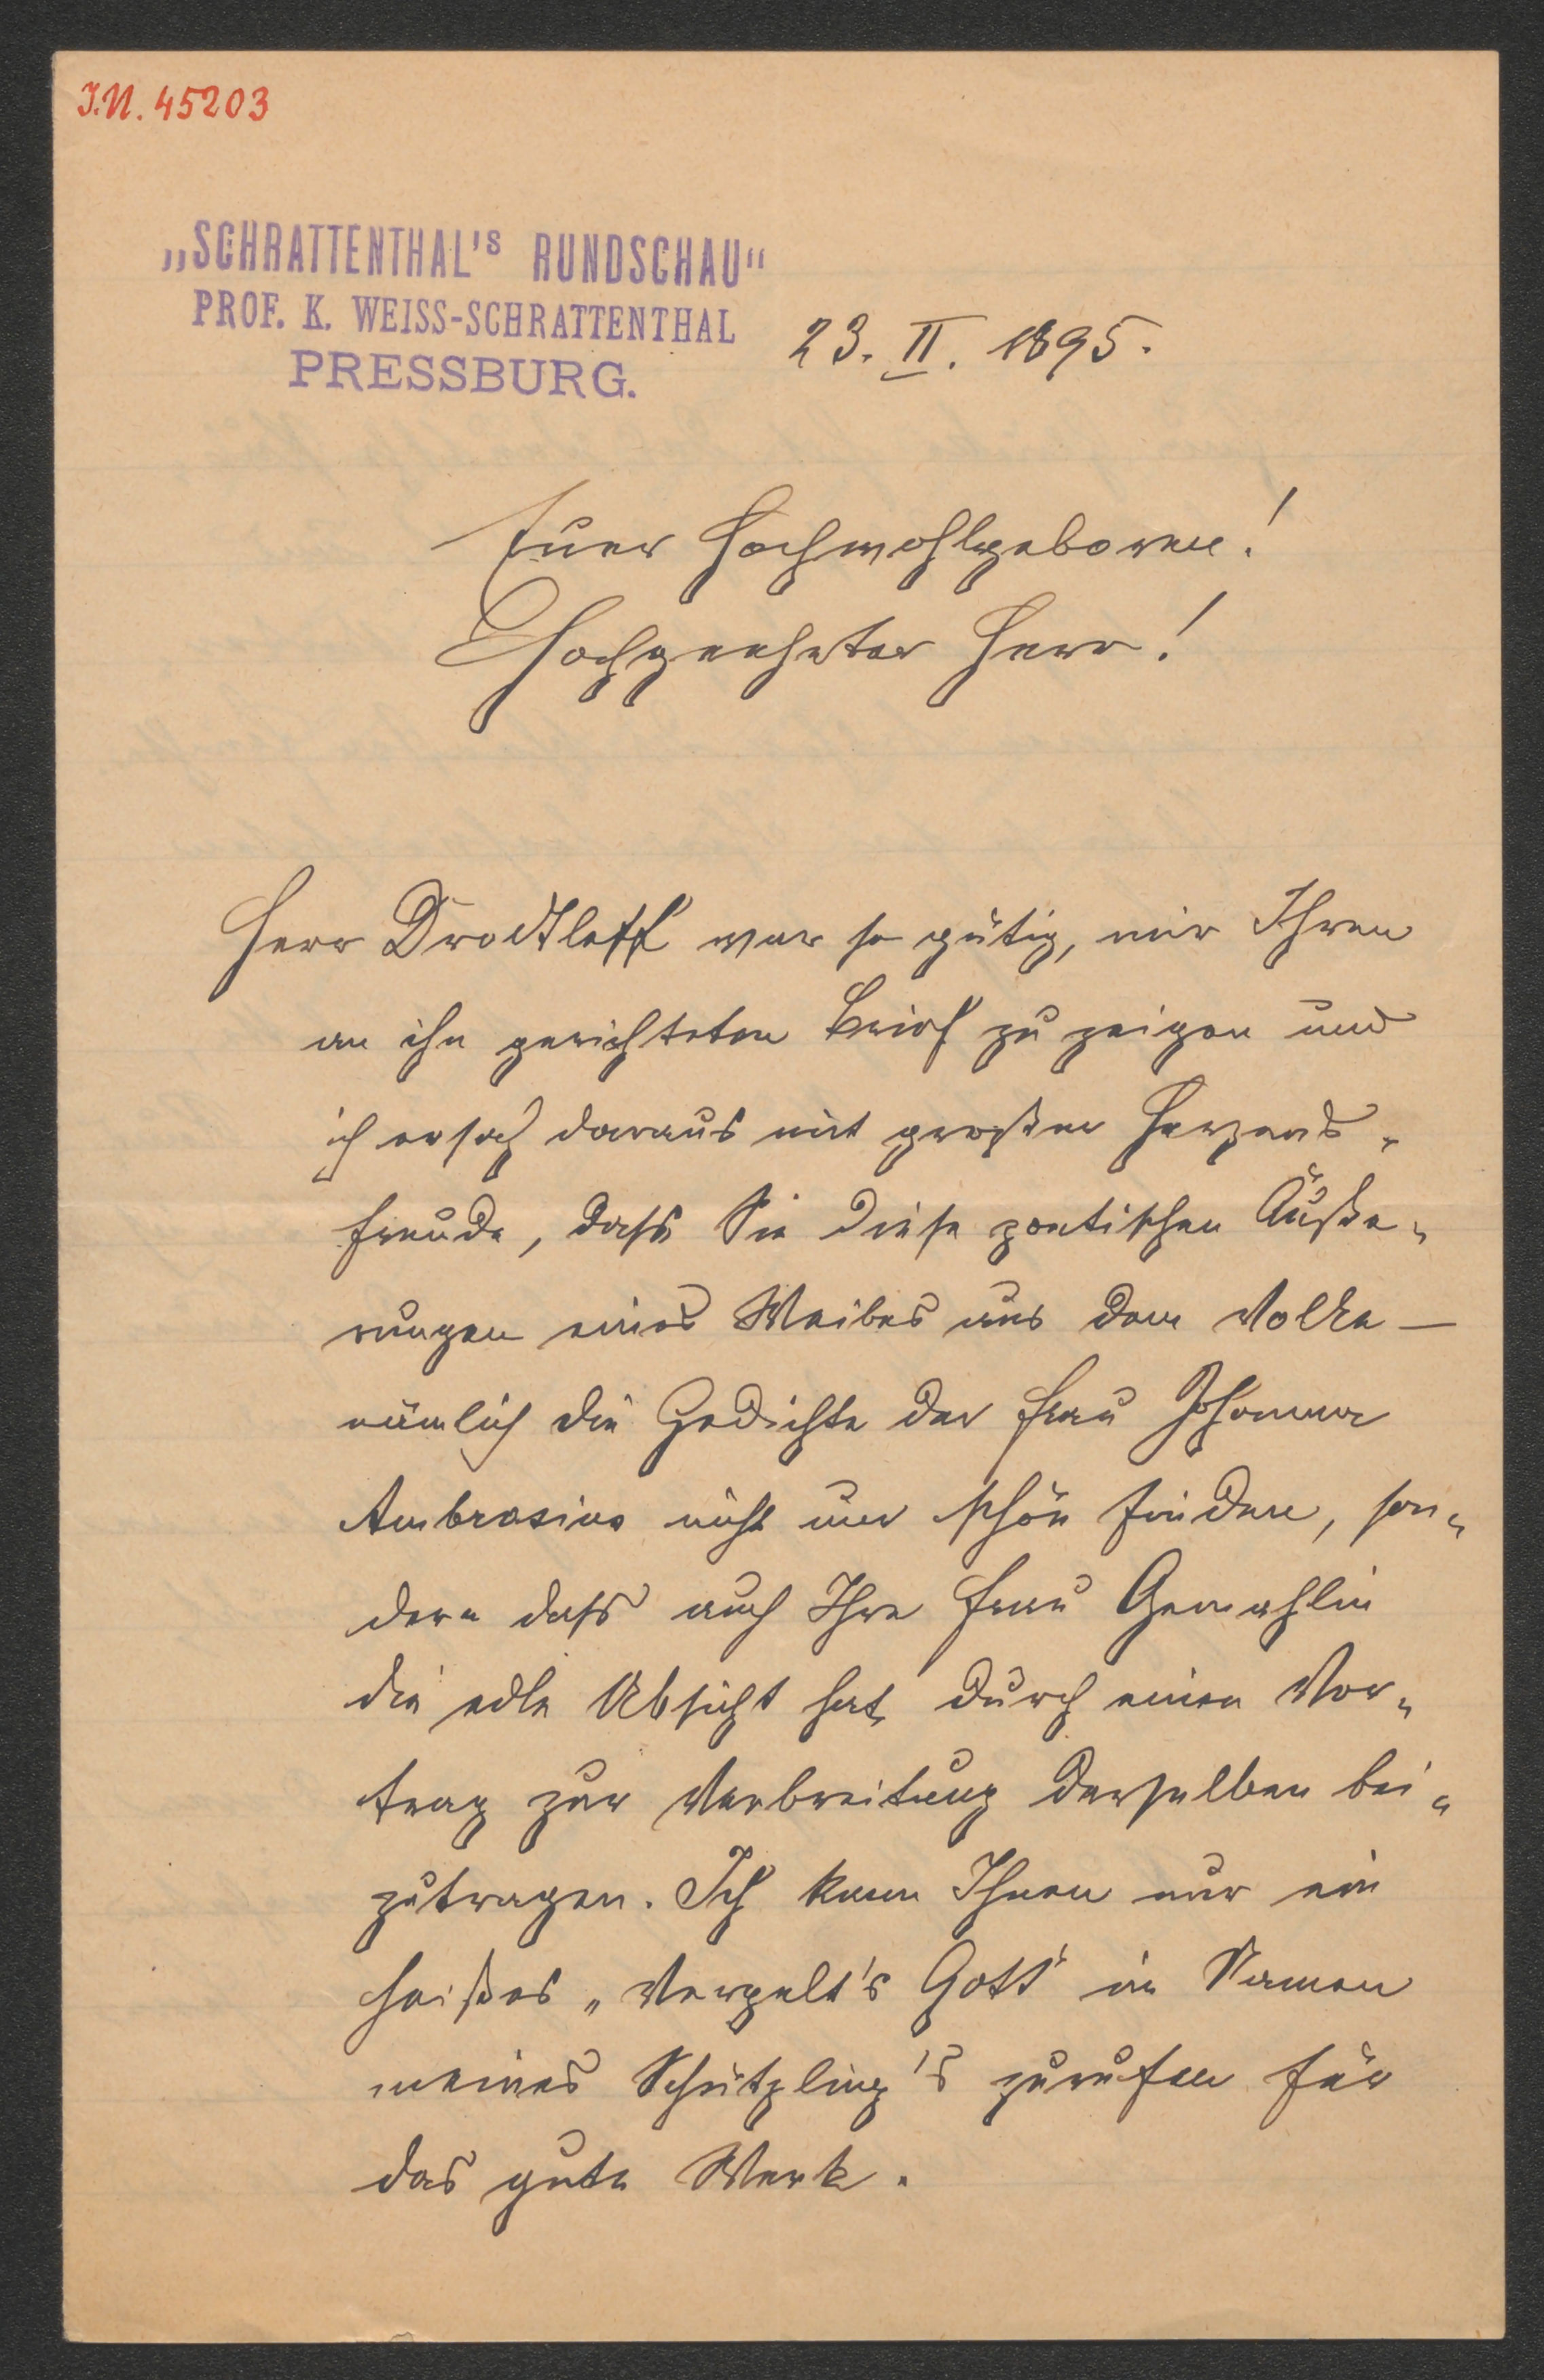 I.N. 45203
„SCHRATTENTHAL's RUNDSCHAU“
PROF. K. WEISS-SCHRATTENTHAL
PRESSBURG.
23. II. 1895.
Euer Hochwohlgeboren!
Hochgeehrter Herr!
Herr Drodtleff war so gütig, mir Ihren
an ihn gerichteten Brief zu zeigen und
ich ersah daraus mit großer Herzens-
freude, dass Sie diese poetischen Äuße-
rungen eines Weibes aus dem Volke —
nämlich die Gedichte der Frau Johanna
Ambrosius nicht nur schön finden, son-
dern dass auch Ihre Frau Gemahlin
die edle Absicht hat, durch einen Vor-
trag zur Verbreitung derselben bei-
zutragen. Ich kann Ihnen nur ein
heißes „Vergelt's Gott“ im Namen
meines Schützling's zurufen für
das gute Werk.